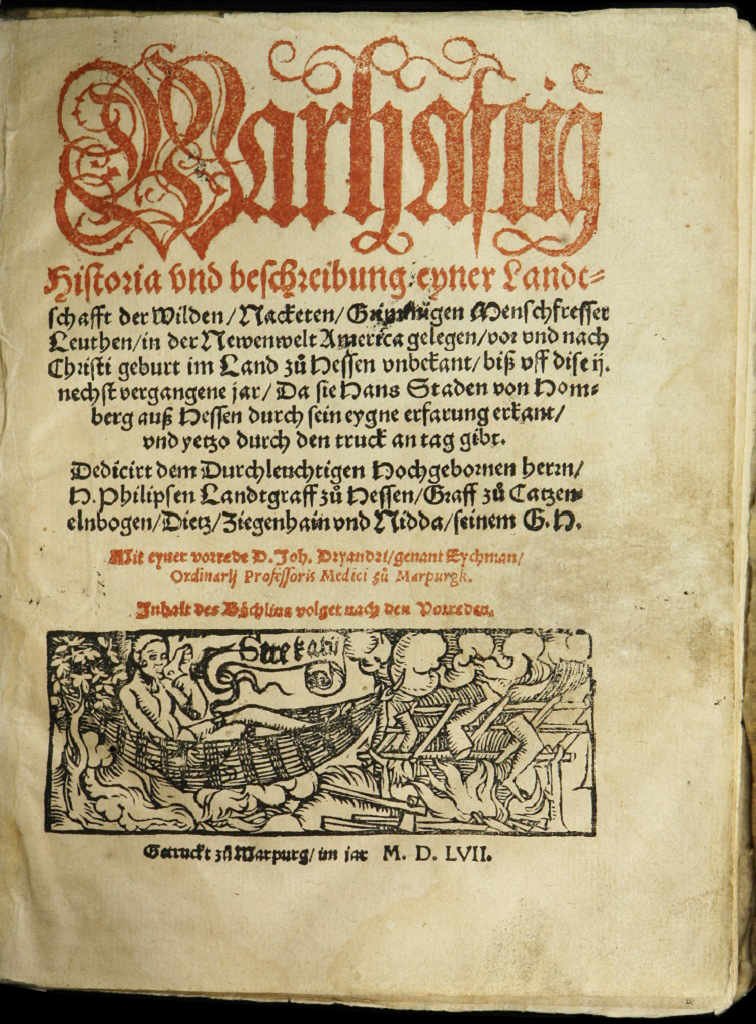 Warhafftig
Historia vnd beschreibung eyner Landt-
schafft der Wilden/Nacketen/Grimmigen Menschfresser
Leuthen/in der Newenwelt America gelegen/vor vnd nach
Christi geburt im Land zů Hessen vnbekant/biß vff dise ij.
nechst vergangene jar/Da sie Hans Staden von Hom-
berg auß Hessen durch sein eygne erfarung erkant/
vnd yetzo durch den truck an tag gibt.
Dedicirt dem Durchleuchtigen Hochgebornen herrn/
H. Philipsen Landtgraff zů Hessen/Graff zů Catzen-
elnbogen/Dietz/Ziegenhain vnd Nidda/seinem G. H.
Mit eyner vorrede D. Joh. Dryandri/genant Eychman/
Ordinarij Professoris Medici zů Marpurgk.
Inhalt des Bůchlins volget nach den Vorreden.
Setekatu
Getruckt zů Marpurg/im jar M. D. LVII.